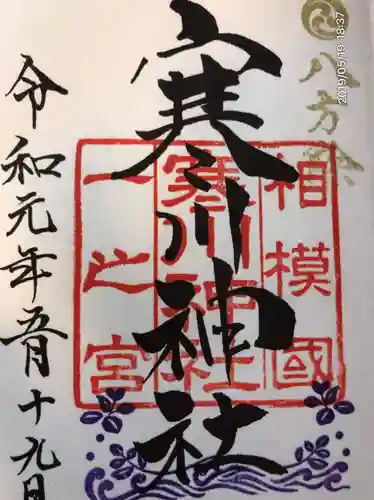 八方除
2019/05/19 18:37
相模國
寒川神社
一之宮
寒川神社
令和元年五月十九日